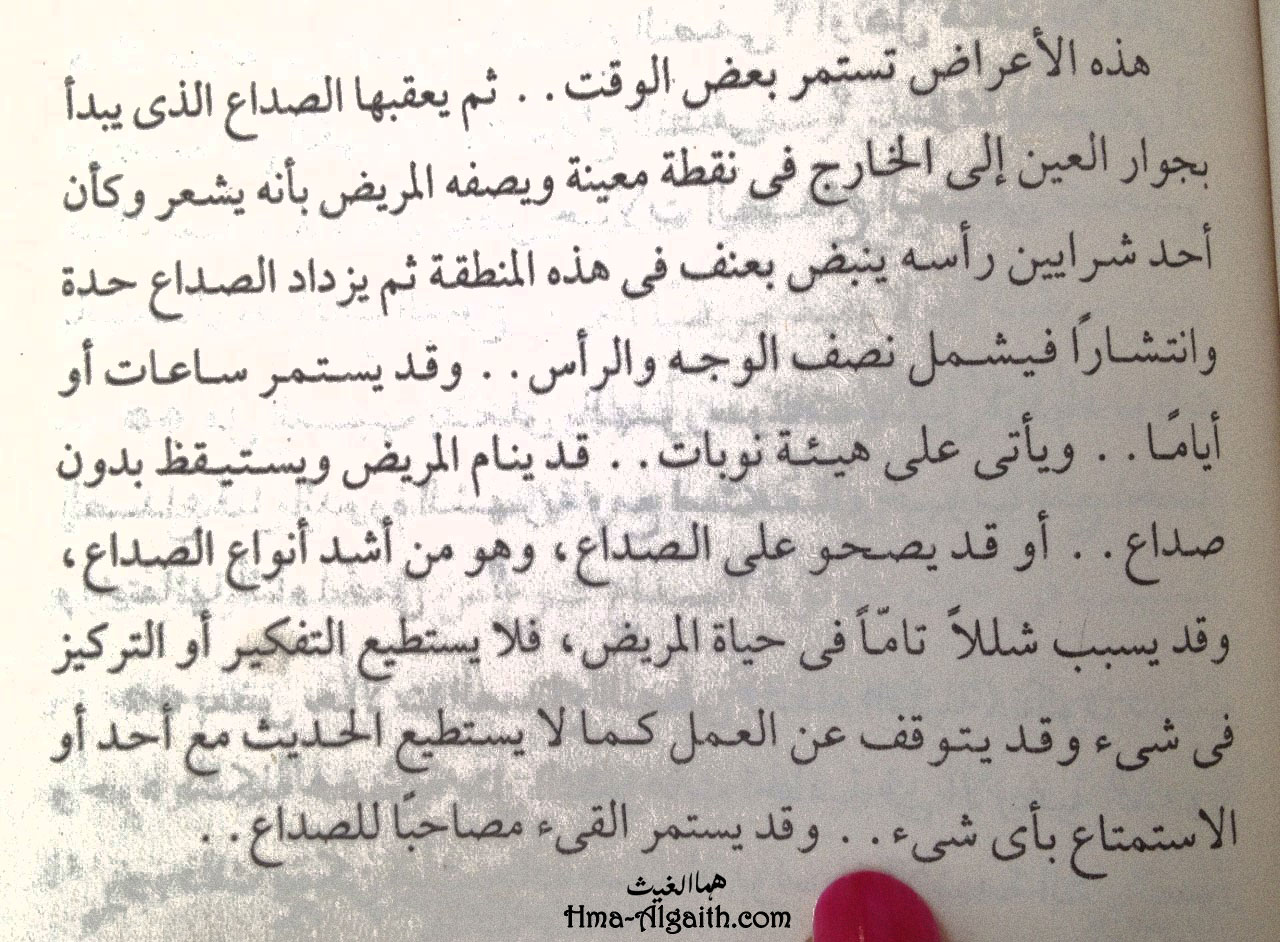 هذه الأعراض تستمر بعض الوقت . . ثم يعقبها الصداع الذى يبدأ
بجوار العين إلى الخارج فى نقطة معينة ويصفه المريض بأنه يشعر وكأن
أحد شرايين رأسه ينبض بعنف فى هذه المنطقة ثم يزداد الصداع حدة
وانتشارًا فيشمل نصف الوجه والرأس . . وقد يستمر ساعات أو
أيامًا . . ويأتى على هيئة نوبات . . قد ينام المريض ويستيقظ بدون
صداع . . أو قد يصحو على الصداع، وهو من أشد أنواع الصداع،
وقد يسبب شللاً تامّاً فى حياة المريض، فلا يستطيع التفكير أو التركيز
فى شىء وقد يتوقف عن العمل كما لا يستطيع الحديث مع أحد أو
الاستمتاع بأى شىء . . وقد يستمر القىء مصاحبًا للصداع . .
هماالغيث
Hma-Algaith.com